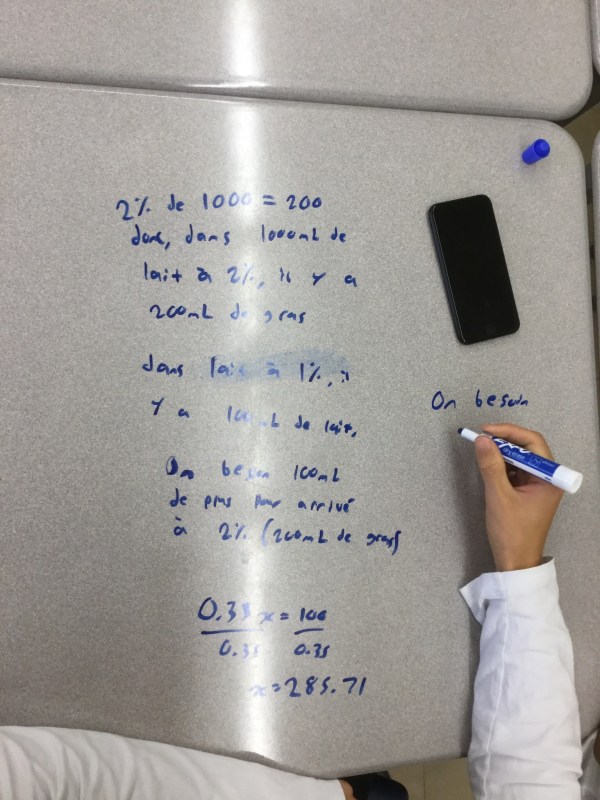 2% de 1000 = 200
donc, dans 1000mL de
lait à 2%, il y a
200mL de gras
dans lait à 1%, il
y a 100mL de lait,
On besoin 100mL
de plus pour arrivé
à 2% (200mL de gras)
0.35x = 100
0.35 0.35
x = 285.71
On besoin
EXPO